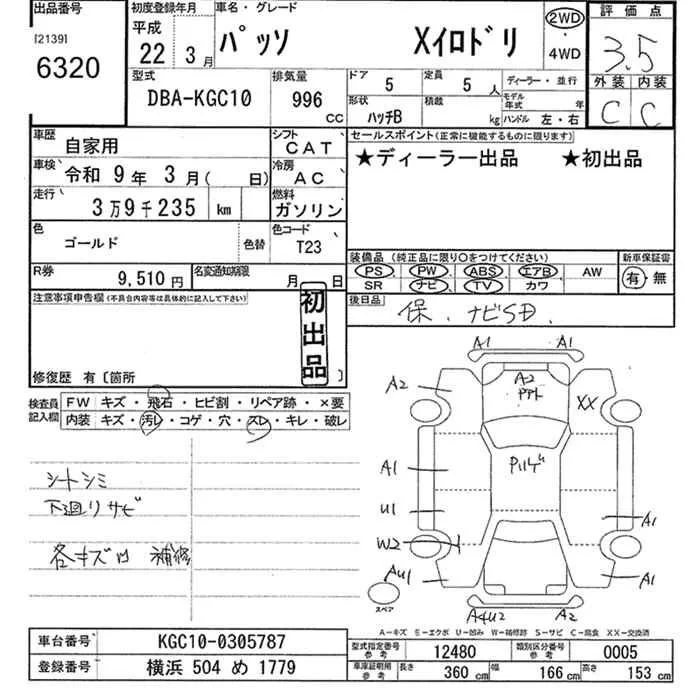 出品番号
[2139]
6320
初度登録年月
平成
22 3月
車名・グレード
パッソ Xイロドリ
2WD
・
4WD
評価点
3.5
外装 内装
C C
型式
DBA-KGC10
排気量
996 cc
ドア 5
定員 5人
ディーラー・並行
形状 ハッチB
積載 kg
モデル年式 年
ハンドル 左・右
車歴 自家用
シフト CAT
車検 令和 9年 3月( 日)
冷房 AC
走行 3万9千235 km
燃料 ガソリン
色 ゴールド 色替
色コード T23
R券 9,510円
名変通知期限 月 日
セールスポイント(正常に機能するものに限ります)
★ディーラー出品 ★初出品
装備品(純正品に限り○をつけてください)
PS PW ABS エアB AW
SR ナビ TV カワ
新車保証書
有・無
後日品
保、ナビSD、
注意事項申告欄(不具合内容等は具体的に記入して下さい)
初出品
修復歴 有〔箇所 〕
検査員記入欄
FW キズ・飛石・ヒビ割・リペア跡・×要
内装 キズ・汚レ・コゲ・穴・スレ・キレ・破レ
シートシミ
下廻りサビ
各キズ凹 補修
A1 A1
A2
A2
XX
A1
U1
W2
AU1
A1
A1
A4U2 A2
スペア
A-キズ E-エクボ U-凹み W-補修跡 S-サビ C-腐食 XX-交換済
車台番号 KGC10-0305787
登録番号 横浜 504 め 1779
型式指定番号参考 12480
類別区分番号参考 0005
車庫証明用参考 長さ 360cm 幅 166cm 高さ 153cm